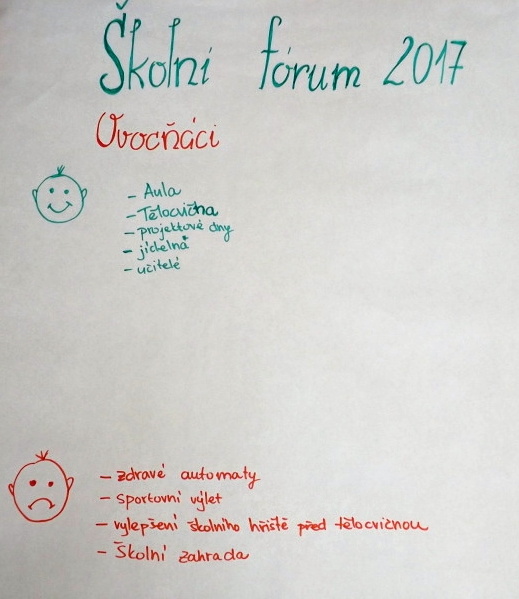 Školní fórum 2017
Ovocňáci
- Aula
- Tělocvična
- projektové dny
- jídelna
- učitelé
- zdravé automaty
- sportovní výlet
- vylepšení školního hřiště před tělocvičnou
- Školní zahrada